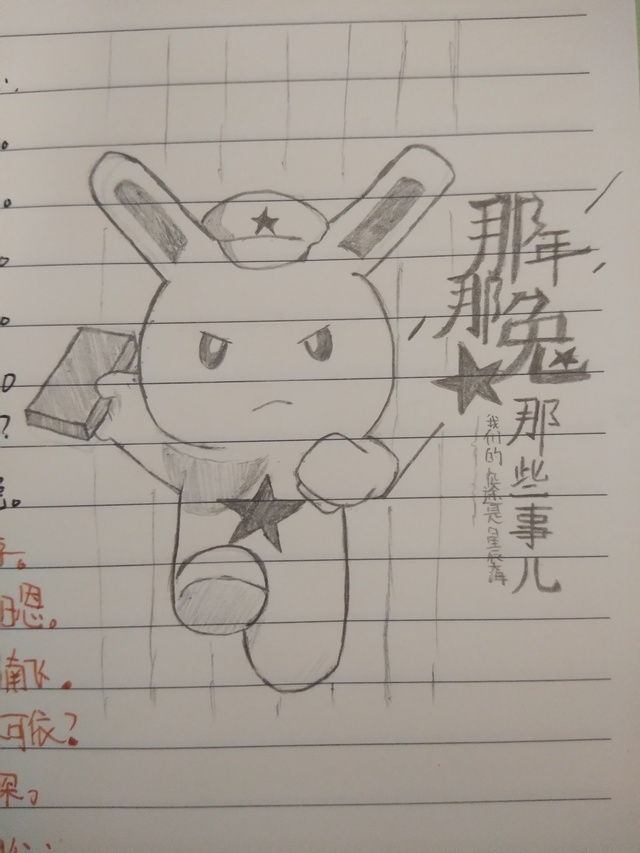 那年
那兔
那些事儿
我们的征途是星辰大海
恩。
南飞。
可依？